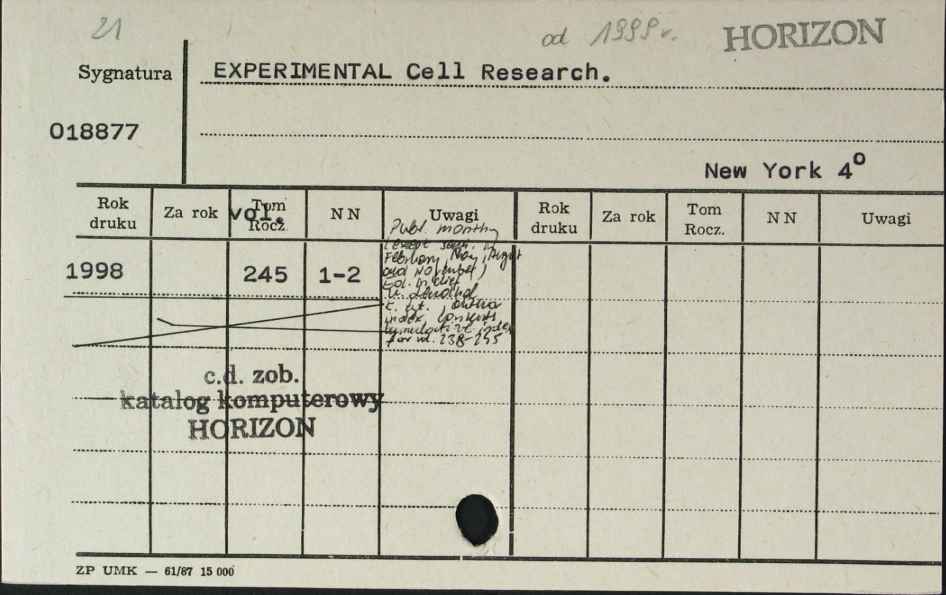 21 od 1999 r. HORIZON
Sygnatura EXPERIMENTAL Cell Research.
018877
New York 4°
Rok druku Za rok Tom Rocz. vol. NN Uwagi Rok druku Za rok Tom Rocz. NN Uwagi
1998 245 1-2
Publ. monthly
(except in
February, May, August
and November)
index, contents
index
for vol. 238-245
c.d. zob.
katalog komputerowy
HORIZON
ZP UMK — 61/87 15 000